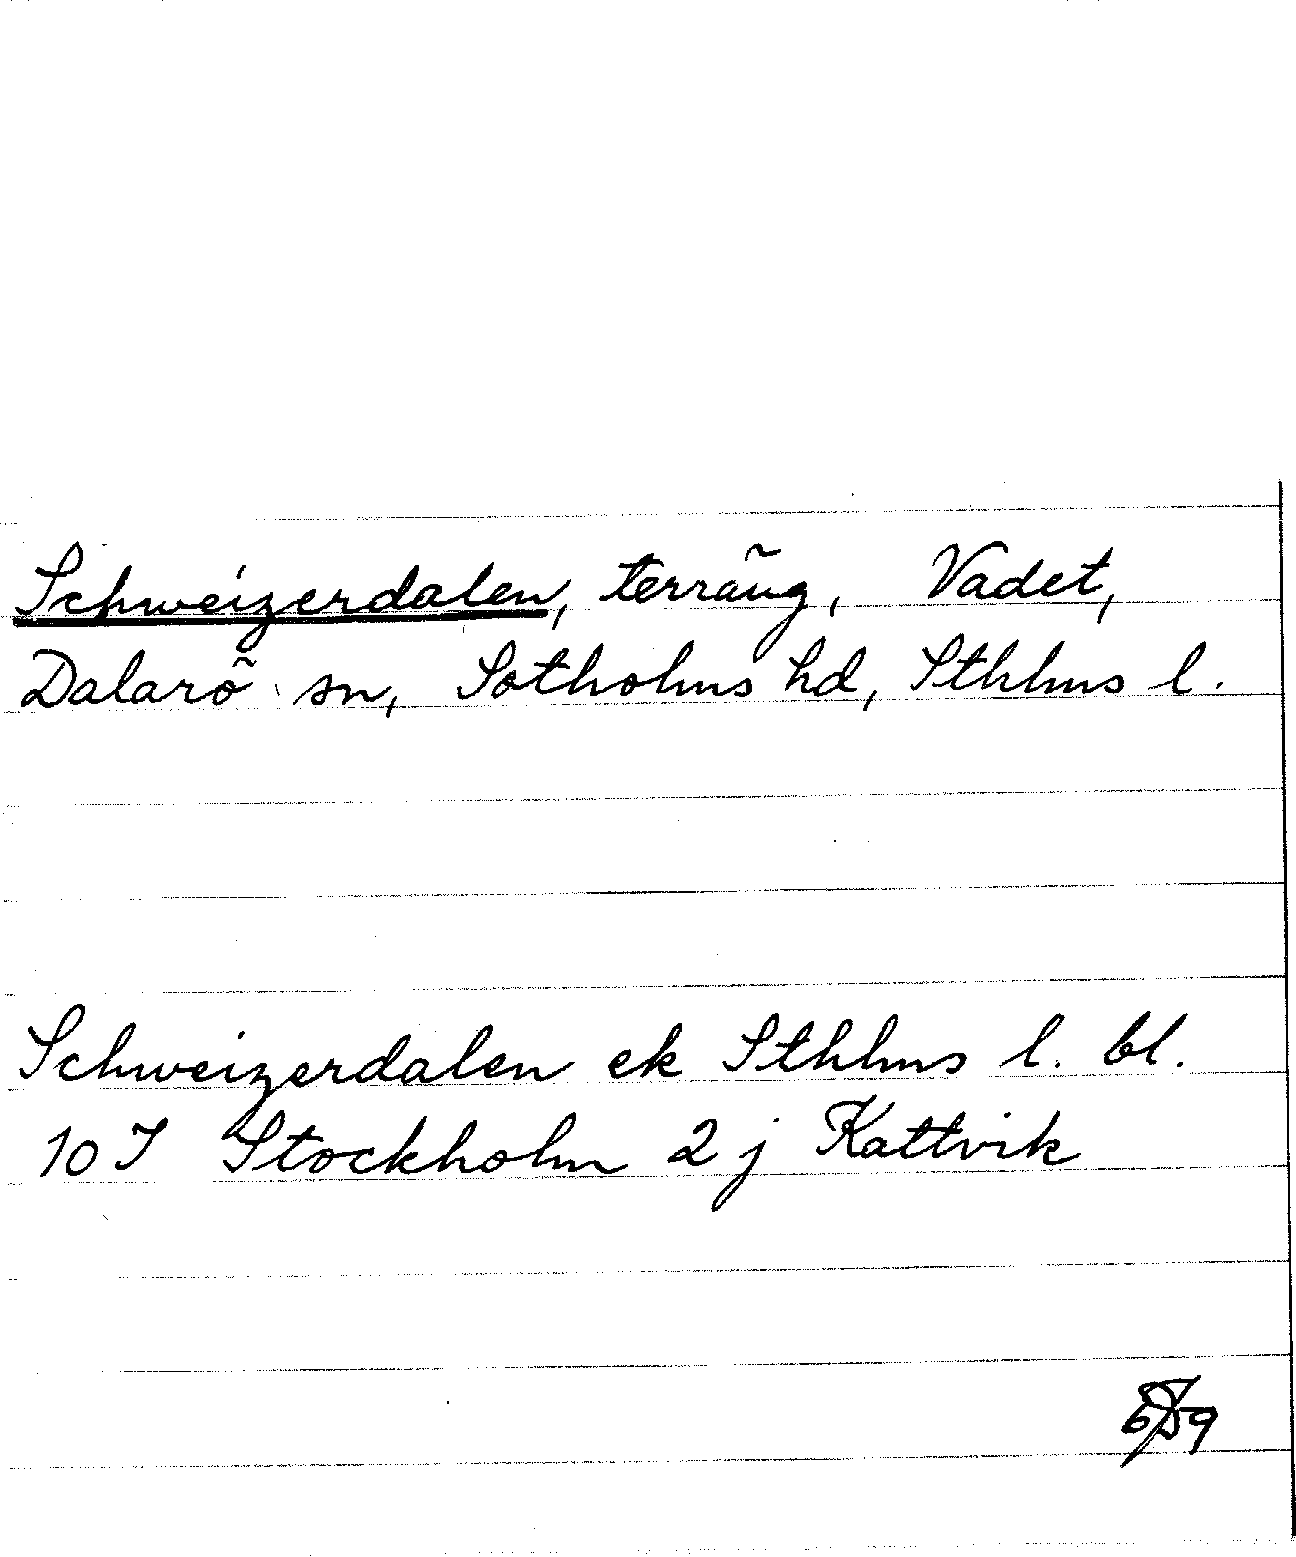 Schweizerdalen, terräng, Vadet,
Dalarö sn, Sotholms hd, Sthlms l.
Schweizerdalen ek Sthlms l. bl.
10 I Stockholm 2 j Kattvik